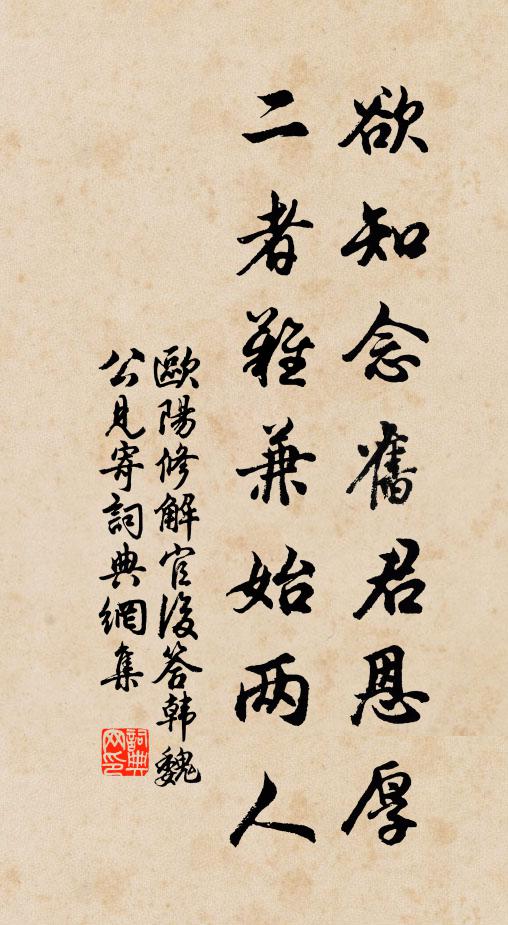 欲知念舊君恩厚
二者難兼始两人
歐陽修解官後答韩魏
公見寄詞典網集
詞典
网印